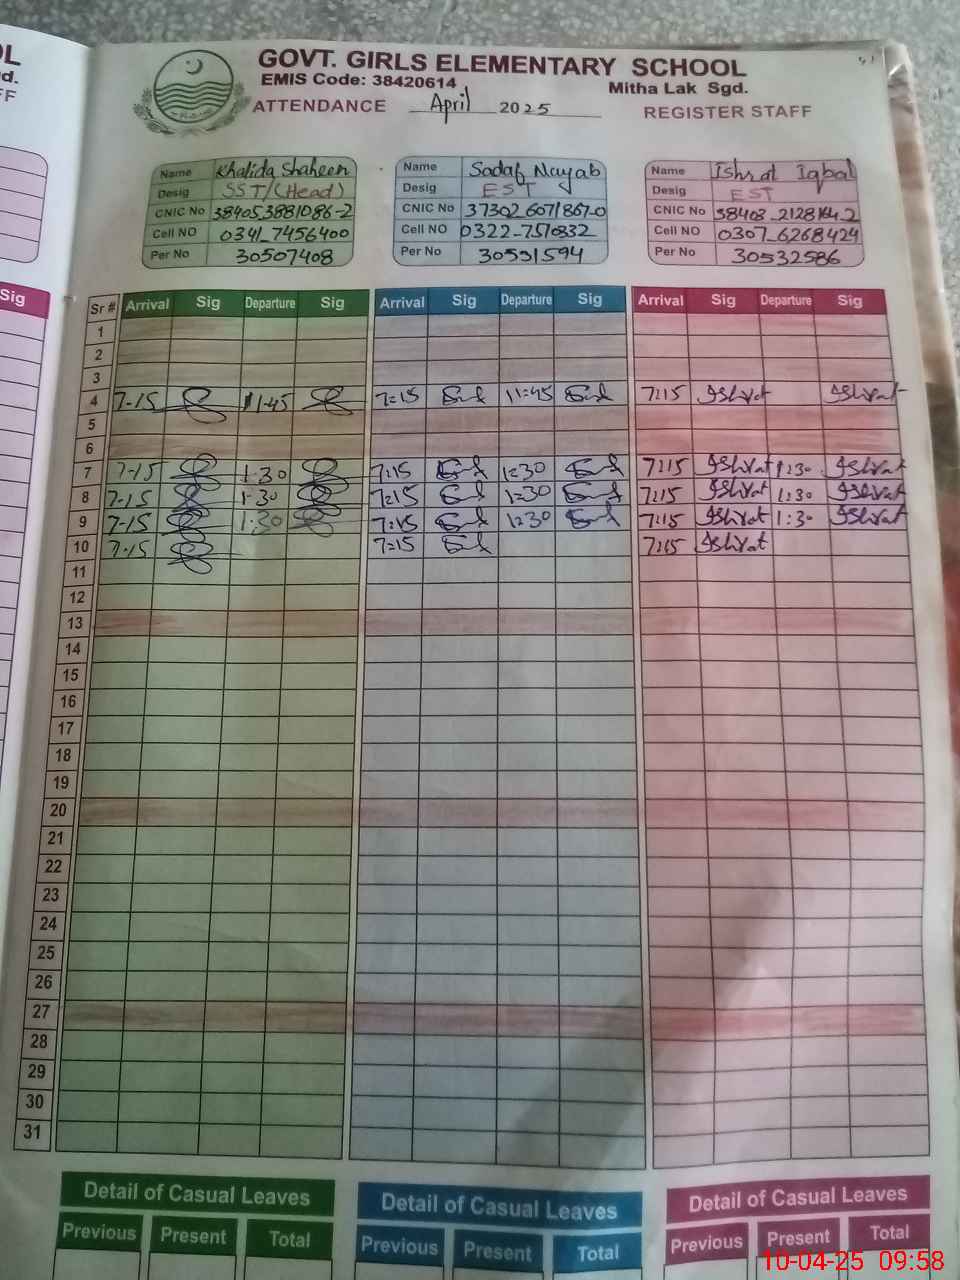 OL
d.
FF
Sig
GOVT. GIRLS ELEMENTARY SCHOOL
EMIS Code: 38420614
Mitha Lak Sgd.
ATTENDANCE April 2025 REGISTER STAFF
Name Khalida Shaheen
Desig SST/(Head)
CNIC No 384053881086-2
Cell NO 0341-7456400
Per No 30507408
Name Sadaf Nayab
Desig EST
CNIC No 37302-6071867-0
Cell NO 0322-7570332
Per No 30531594
Name Ishrat Iqbal
Desig EST
CNIC No
Cell NO 0307-6268424
Per No 30532586
Sr # Arrival Sig Departure Sig Arrival Sig Departure Sig Arrival Sig Departure Sig
1
2
3
4 7-15 11-45 7:15 11:45 7:15 Ishrat Ishrat
5
6
7 7-15 1-30 7:15 1:30 7:15 Ishrat 1:30 Ishrat
8 7-15 1-30 7:15 1:30 7:15 Ishrat 1:30 Ishrat
9 7-15 1-30 7:15 1:30 7:15 Ishrat 1:30 Ishrat
10 7-15 7:15 7:15 Ishrat
11
12
13
14
15
16
17
18
19
20
21
22
23
24
25
26
27
28
29
30
31
Detail of Casual Leaves Detail of Casual Leaves Detail of Casual Leaves
Previous Present Total Previous Present Total Previous Present Total
10-04-25 09:58